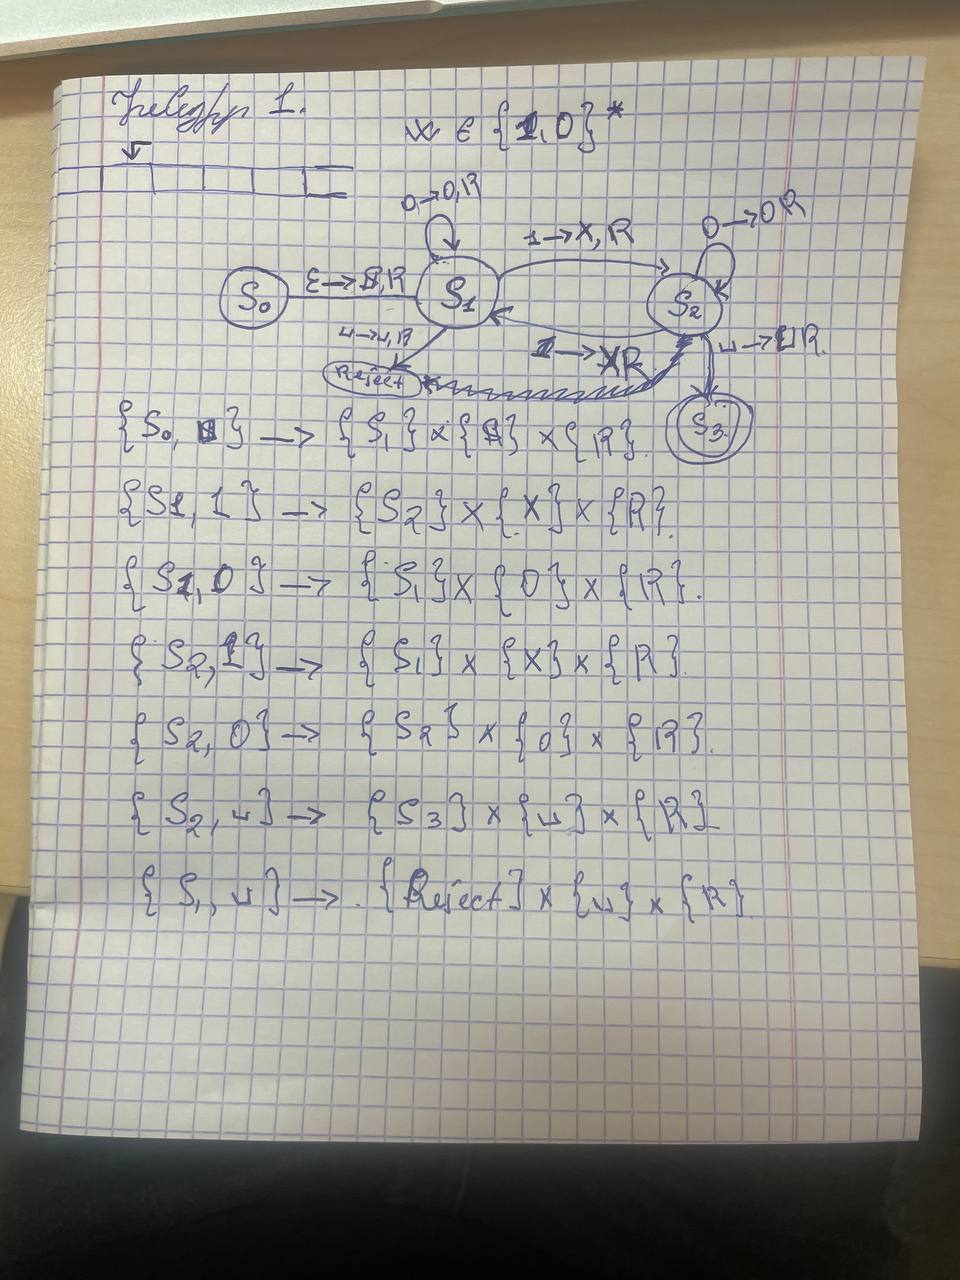 1.
w ∈ {1,0}*
0→0,R
1→X,R
0→0R
S₀
S₁
S₂
⊔→⊔,R
1→XR
⊔→⊔R.
Reject
S₃
{S₁} × {R}.
{S1, 1} → {S₂} × {X} × {R}.
{S1, 0} → {S₁} × {0} × {R}.
{S₂, 1} → {S₁} × {X} × {R}.
{S₂, 0} → {S₂} × {0} × {R}.
{S₂, ⊔} → {S₃} × {⊔} × {R}
{S₁, ⊔} → {Reject} × {⊔} × {R}